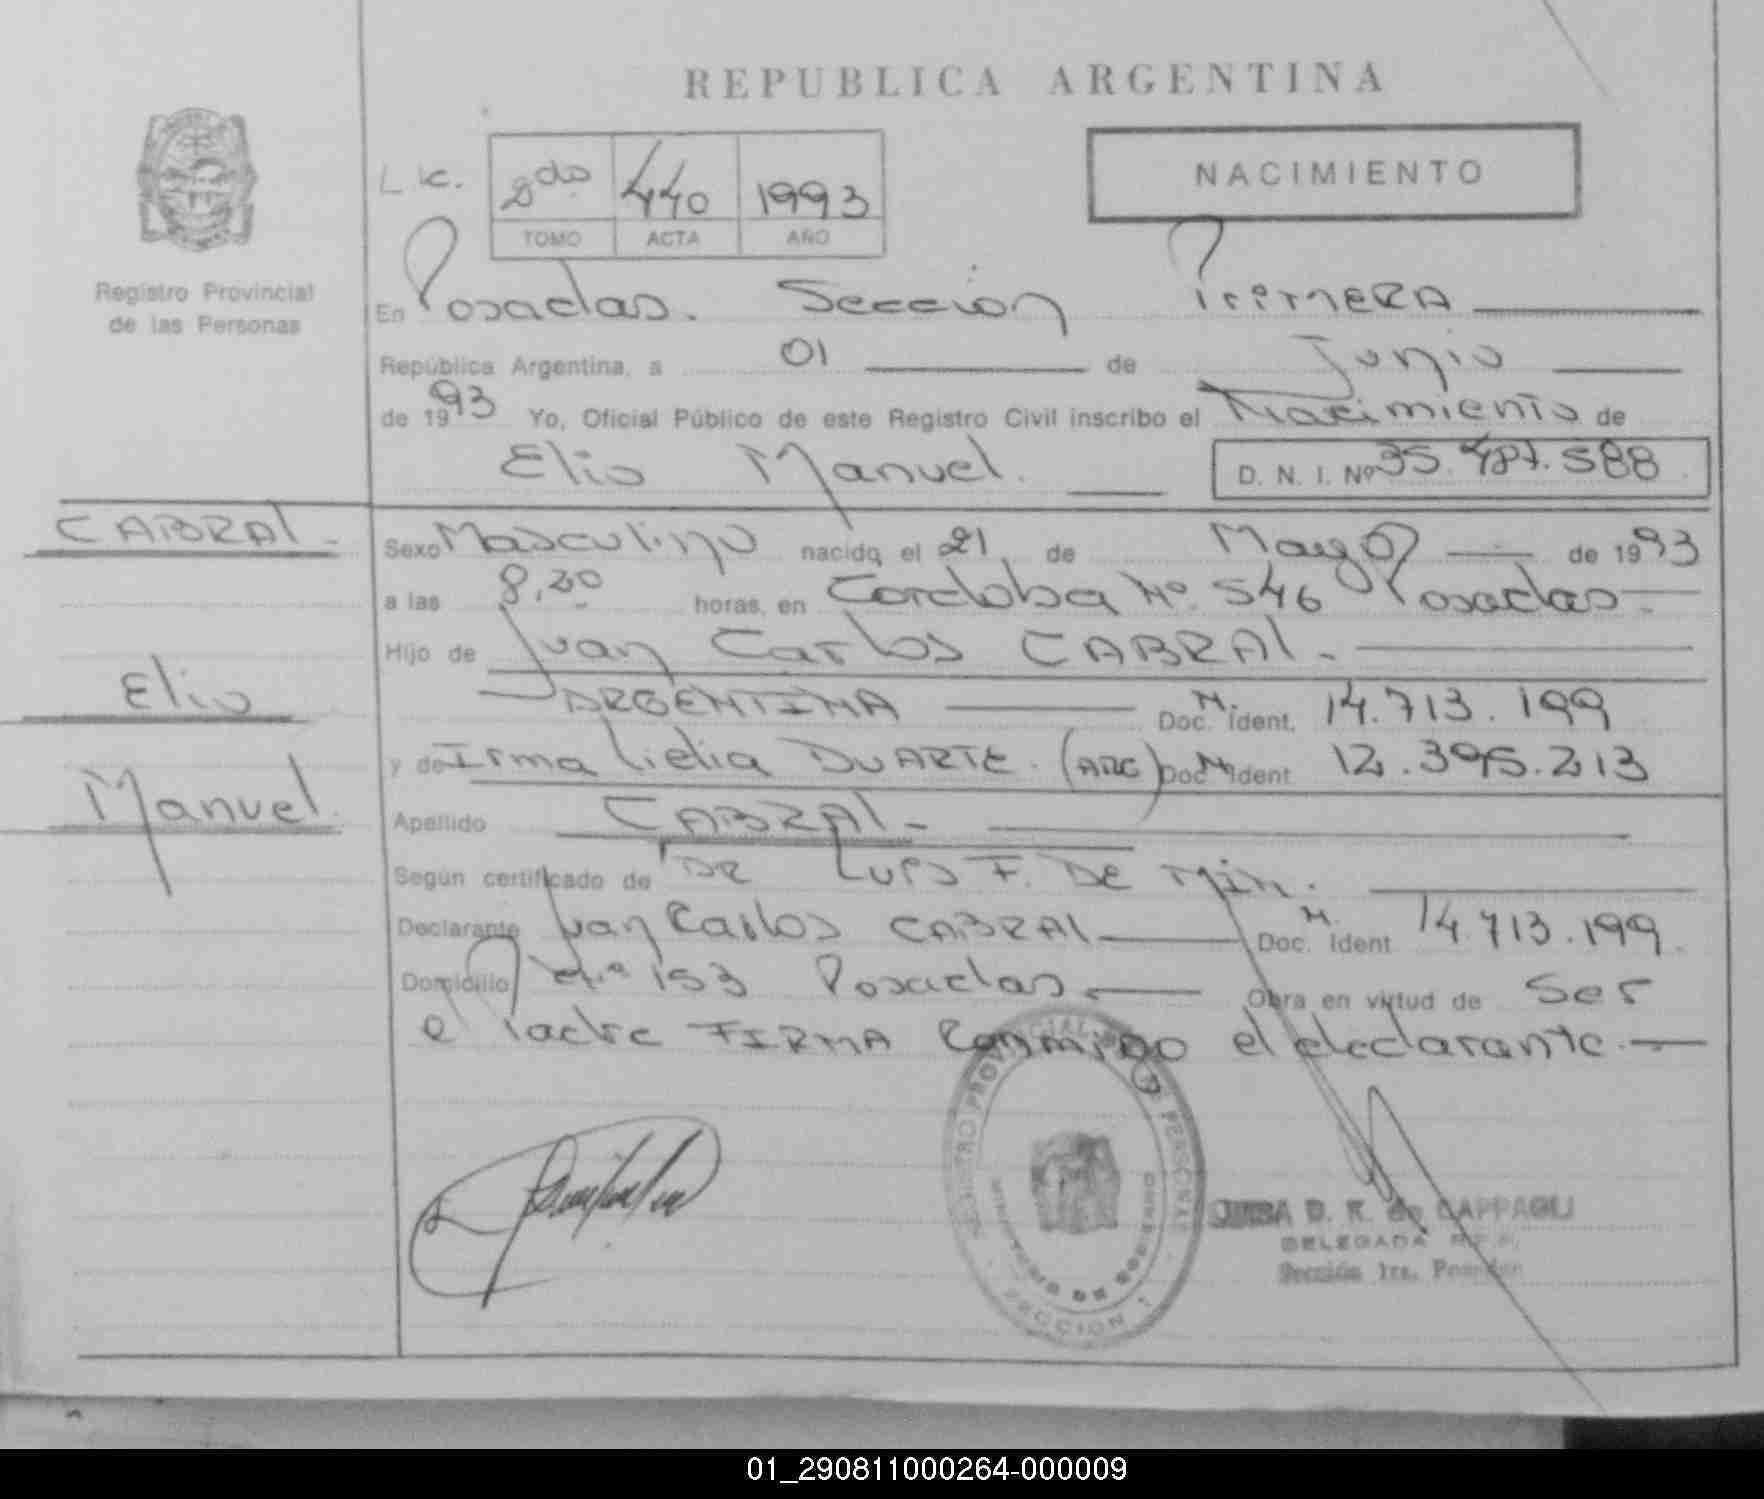 REPUBLICA ARGENTINA
NACIMIENTO
Lic.
2do 440 1993
TOMO ACTA AÑO
Registro Provincial
de las Personas
En Posadas. Sección Primera
República Argentina, a 01 de Junio
de 1993 Yo, Oficial Público de este Registro Civil inscribo el Nacimiento de
Elio Manuel.
D. N. I. Nº 35.487.588
CABRAL
Elio
Manuel.
Sexo Masculino nacido el 21 de Mayo de 1993
a las 8,20 horas, en Cordoba Nº 546 Posadas
Hijo de Juan Carlos CABRAL.
ARGENTINA Doc. Ident. 14.713.199
y de Irma Lidia DUARTE. (ARG) Doc. Ident 12.395.213
Apellido CABRAL
Según certificado de DR Luis F. DE
Declarante Juan Carlos CABRAL Doc. Ident 14.713.199
Domicilio 153 Posadas Obra en virtud de Ser
el Padre FIRMA Conmigo el declarante.
REGISTRO PROVINCIAL DE LAS PERSONAS
MINISTERIO DE GOBIERNO
SECCION 1
D. R. de CAPPAGLI
DELEGADA R.P.P.
Sección 1ra. Posadas
01_290811000264-000009